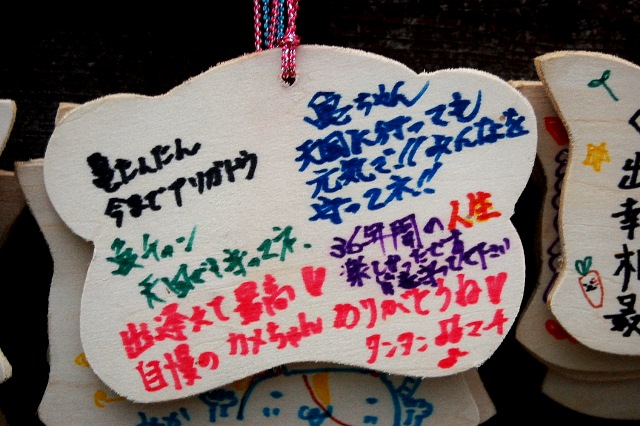 亀たんたん
今までアリガトウ
亀ちゃん
天国に行っても
元気で!!みんなを
守ってネ!!
亀チャン
天国でも守ってネ.
36年間の人生
楽しかったです
出逢えて最高♥
自慢のカメちゃん
ありがとうね♥
タンタン
出
幸
相
最